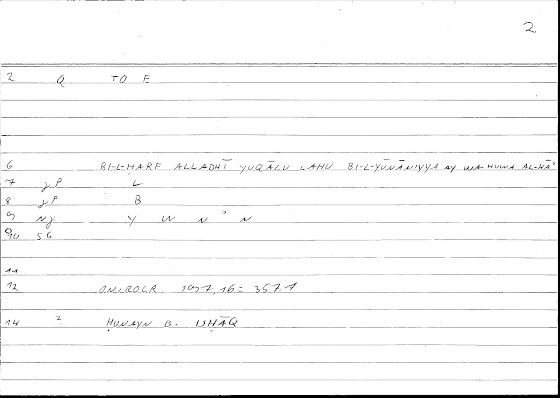 2
2 Q TO E
6 BI-L-ḤARF ALLADHĪ YUQĀLU LAHU BI-L-YŪNĀNIYYA AY WA-HUWA AL-HĀʾ
7 gP L
8 gP B
9 Ng Y W N ʾ N
10 SG
11
12 ONIROCR 197,16 = 357.1
14 2 ḤUNAYN B. ISḤĀQ